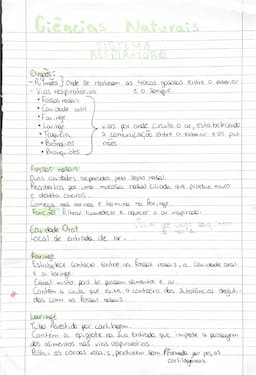 Ciências Naturais
SISTEMA
RESPIRATÓRIO
Orgãos:
- Pulmões} Onde se realizam as trocas gasosas entre o exterior
- Vias respiratórias e o sangue.
• Fossas nasais
• Cavidade oral
• Faringe
• Laringe } vias por onde circula o ar, estabelecendo
• Traqueia a comunicação entre o exterior e os pul-
• Brônquios mões
• Bronquíolos
Fossas nasais:
Duas cavidades separadas pelo septo nasal.
Recobertas por uma mucosa nasal ciliada, que produz muco
e deteta cheiros.
Começa nas narinas e termina na faringe.
Função: filtrar, humedecer e aquecer o ar inspirado.
Cavidade Oral
Local de entrada de ar.
Faringe
Estabelece contacto entre as fossas nasais, a cavidade oral
e a laringe.
Canal misto pois lá passam alimentos e ar.
Contém a úvula que evita o contacto das substâncias degluti-
das com as fossas nasais.
Laringe
Tubo revestido por cartilagem.
Contém a epiglote na sua entrada que impede a passagem
dos alimentos nas vias respiratórias.
Possui as cordas vocais, produzem som. Formada por peças
cartilagíneas.